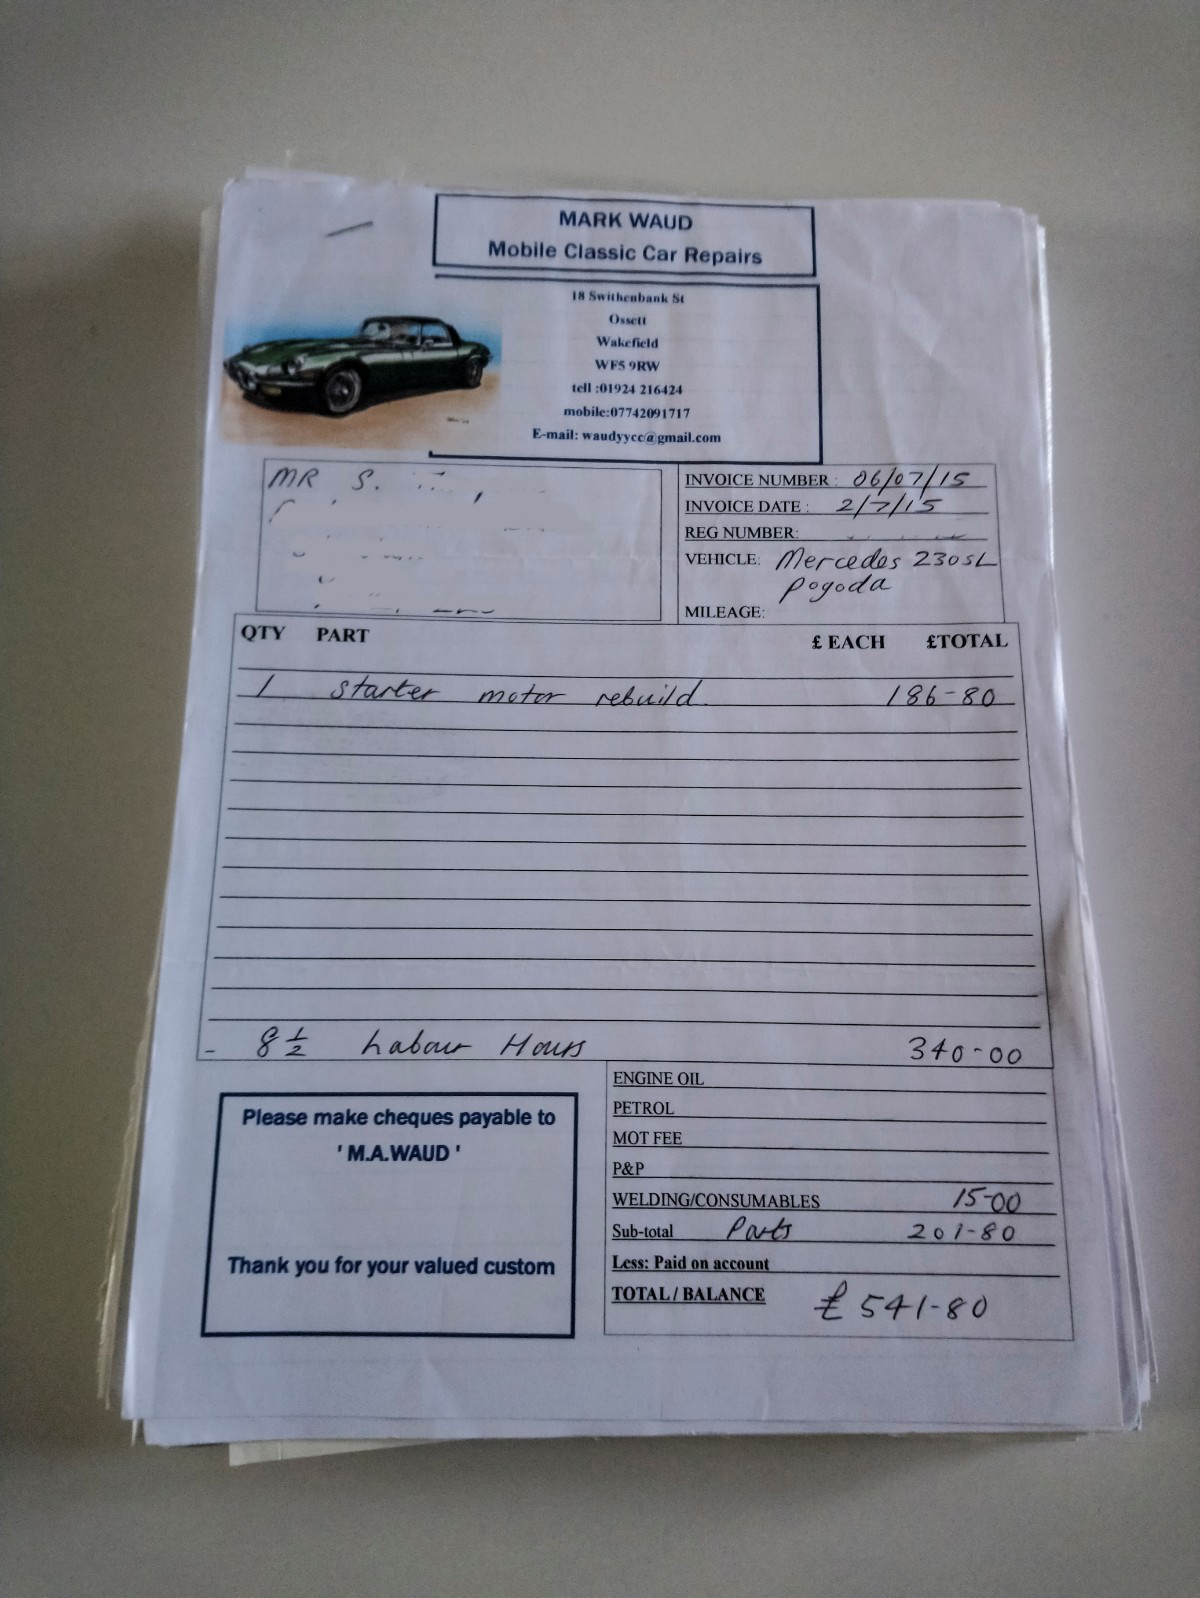 MARK WAUD
Mobile Classic Car Repairs
18 Swithenbank St
Ossett
Wakefield
WF5 9RW
tell :01924 216424
mobile:07742091717
E-mail: waudyycc@gmail.com
MR S.
INVOICE NUMBER : 06/07/15
INVOICE DATE : 2/7/15
REG NUMBER:
VEHICLE: Mercedes 230SL
pogoda
MILEAGE:
QTY PART £ EACH £TOTAL
1 starter motor rebuild 186-80
8 1/2 Labour Hours 340-00
Please make cheques payable to
' M.A.WAUD '
Thank you for your valued custom
ENGINE OIL
PETROL
MOT FEE
P&P
WELDING/CONSUMABLES 15-00
Sub-total Parts 201-80
Less: Paid on account
TOTAL / BALANCE £541-80